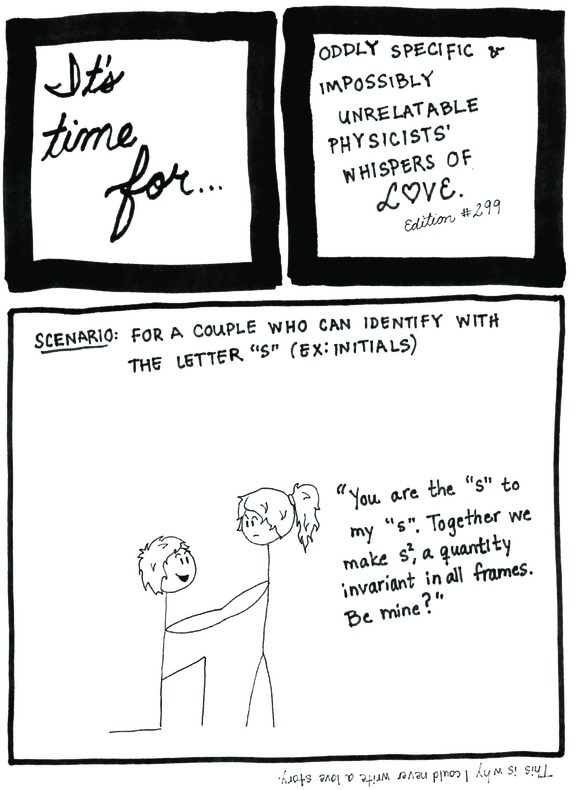 It's
time
for...
ODDLY SPECIFIC &
IMPOSSIBLY
UNRELATABLE
PHYSICISTS'
WHISPERS OF
LOVE.
Edition #299
SCENARIO: FOR A COUPLE WHO CAN IDENTIFY WITH
THE LETTER "S" (EX: INITIALS)
"You are the "s" to
my "s". Together we
make s², a quantity
invariant in all frames.
Be mine?"
This is why I could never write a love story.